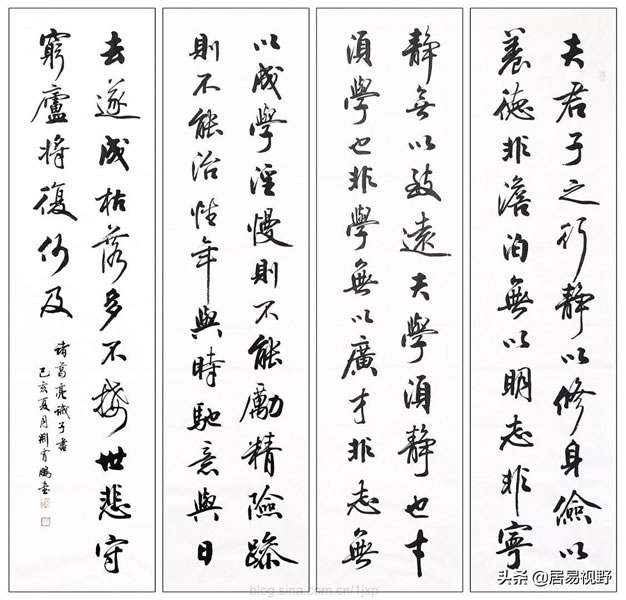 夫君子之行静以修身儉以
養德非澹泊無以明志非寧
静無以致遠夫學須静也才
須學也非學無以廣才非志無
以成學淫慢則不能勵精險躁
則不能治性年與時馳意與日
去遂成枯落多不接世悲守
窮廬將復何及
諸葛亮誡子書
己亥夏月荆霄鵬書
blog.sina.com.cn/1jxp
头条 @居易视野